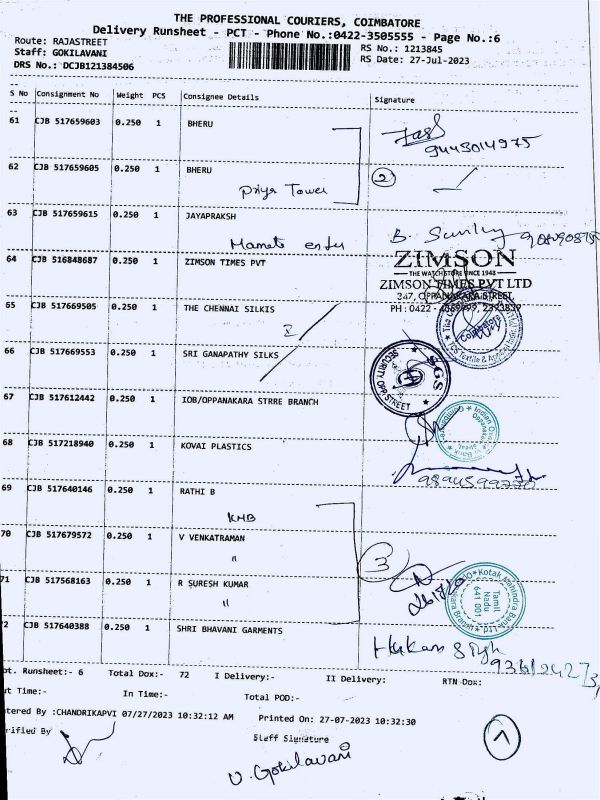 THE PROFESSIONAL COURIERS, COIMBATORE
Delivery Runsheet - PCT - Phone No.:0422-3505555 - Page No.:6
Route: RAJASTREET
RS No.: 1213845
Staff: GOKILAVANI
RS Date: 27-Jul-2023
DRS No.: DCJB121384506
S No Consignment No Weight PCS Consignee Details Signature
61 CJB 517659603 0.250 1 BHERU
9443014975
62 CJB 517659605 0.250 1 BHERU
2
Priya Tower
63 CJB 517659615 0.250 1 JAYAPRAKSH
B.
64 CJB 516848687 0.250 1 ZIMSON TIMES PVT
ZIMSON
THE WATCH STORE SINCE 1948
ZIMSON TIMES PVT LTD
347, OPPANAKARA STREET,
PH : 0422 -
65 CJB 517669505 0.250 1 THE CHENNAI SILKIS
Coimbatore
66 CJB 517669553 0.250 1 SRI GANAPATHY SILKS
SGS
SECURITY OPP. STREET
67 CJB 517612442 0.250 1 IOB/OPPANAKARA STRRE BRANCH
68 CJB 517218940 0.250 1 KOVAI PLASTICS
69 CJB 517640146 0.250 1 RATHI B
KMB
70 CJB 517679572 0.250 1 V VENKATRAMAN
"
3
71 CJB 517568163 0.250 1 R SURESH KUMAR
"
Kotak Mahindra Bank Ltd
Tamil
Nadu
641 001
72 CJB 517640388 0.250 1 SHRI BHAVANI GARMENTS
Singh
ot. Runsheet:- 6 Total Dox:- 72 I Delivery:- II Delivery: RTN Dox:
ut Time:- In Time:- Total POD:-
ntered By :CHANDRIKAPVI 07/27/2023 10:32:12 AM Printed On: 27-07-2023 10:32:30
erified By Staff Signature
V. Gokilavani